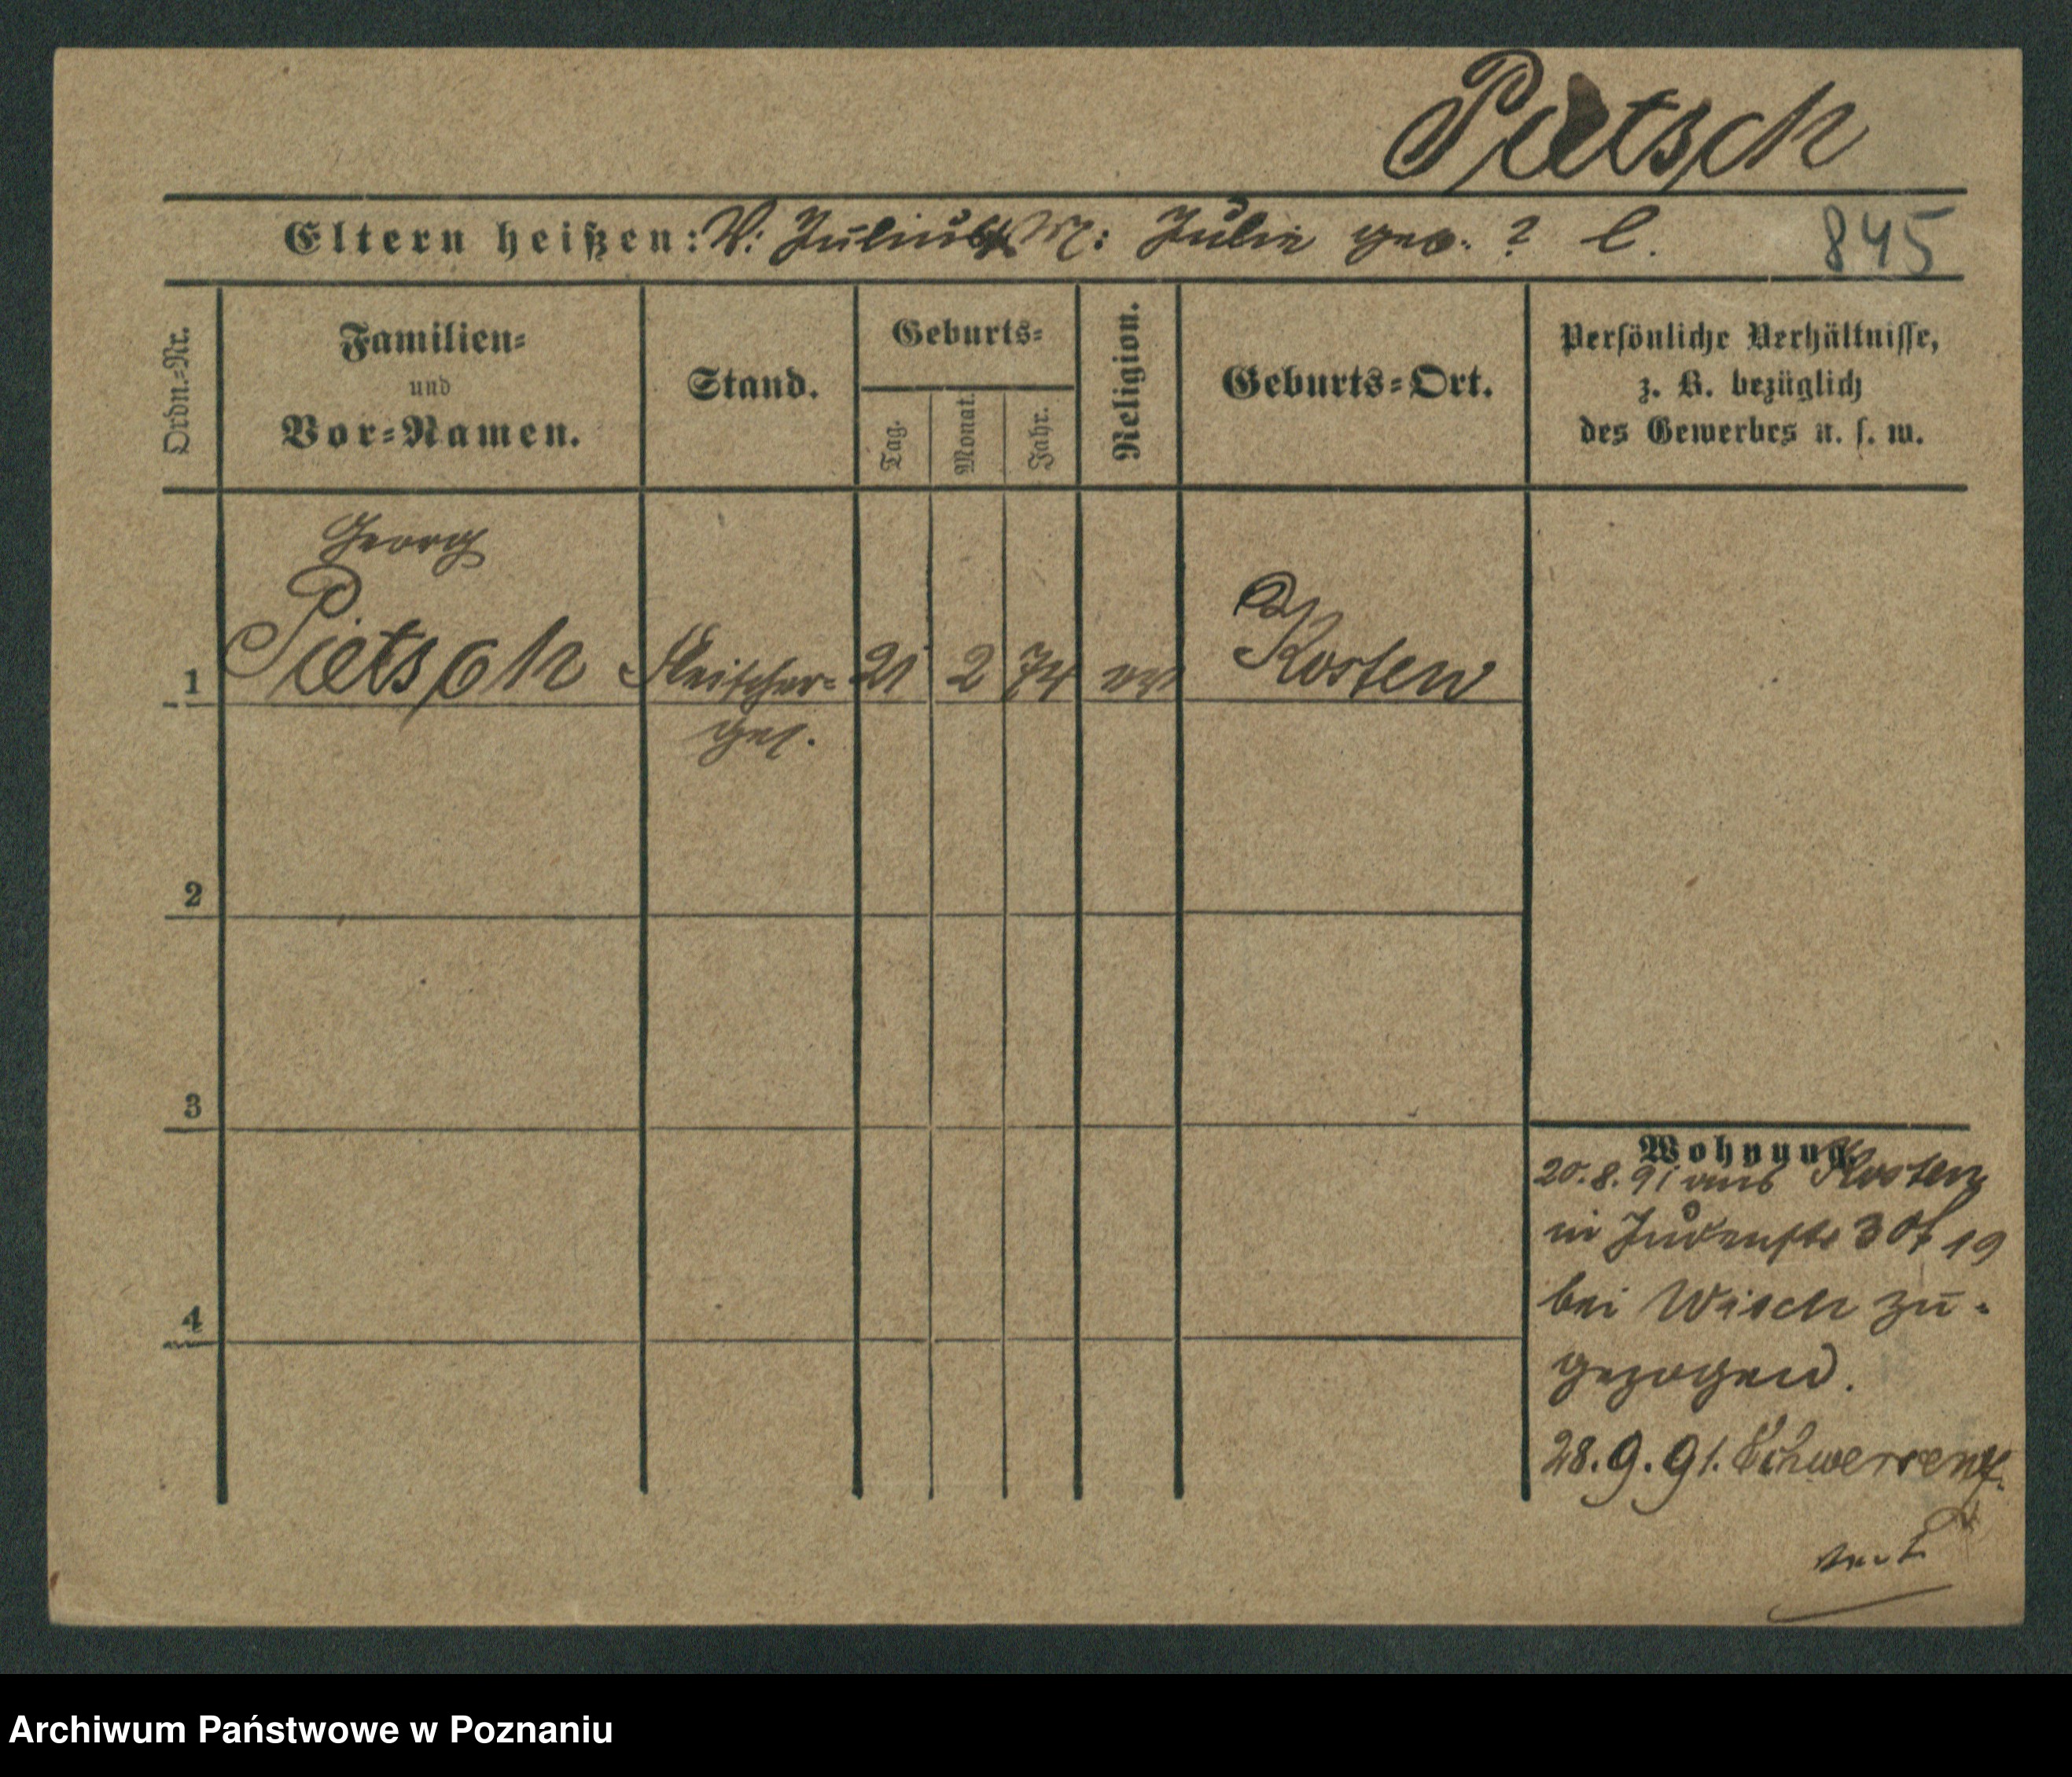 Pietsch
Eltern heißen: V: Julius † M: Julie geb. ? l.
845
Ordn.-Nr.
Familien-
und
Vor-Namen.
Stand.
Geburts-
Tag.
Monat.
Jahr.
Religion.
Geburts-Ort.
Persönliche Verhältnisse,
z. B. bezüglich
des Gewerbes u. s. w.
Georg
1 Pietsch Fleischer- 21 2 74 ev Kosten
ges.
2
3
4
Wohnung.
20.8.91 aus Kosten
in Judenstr 30 19
bei Wisch zu-
gezogen.
28.9.91. Schwersenz
Archiwum Państwowe w Poznaniu